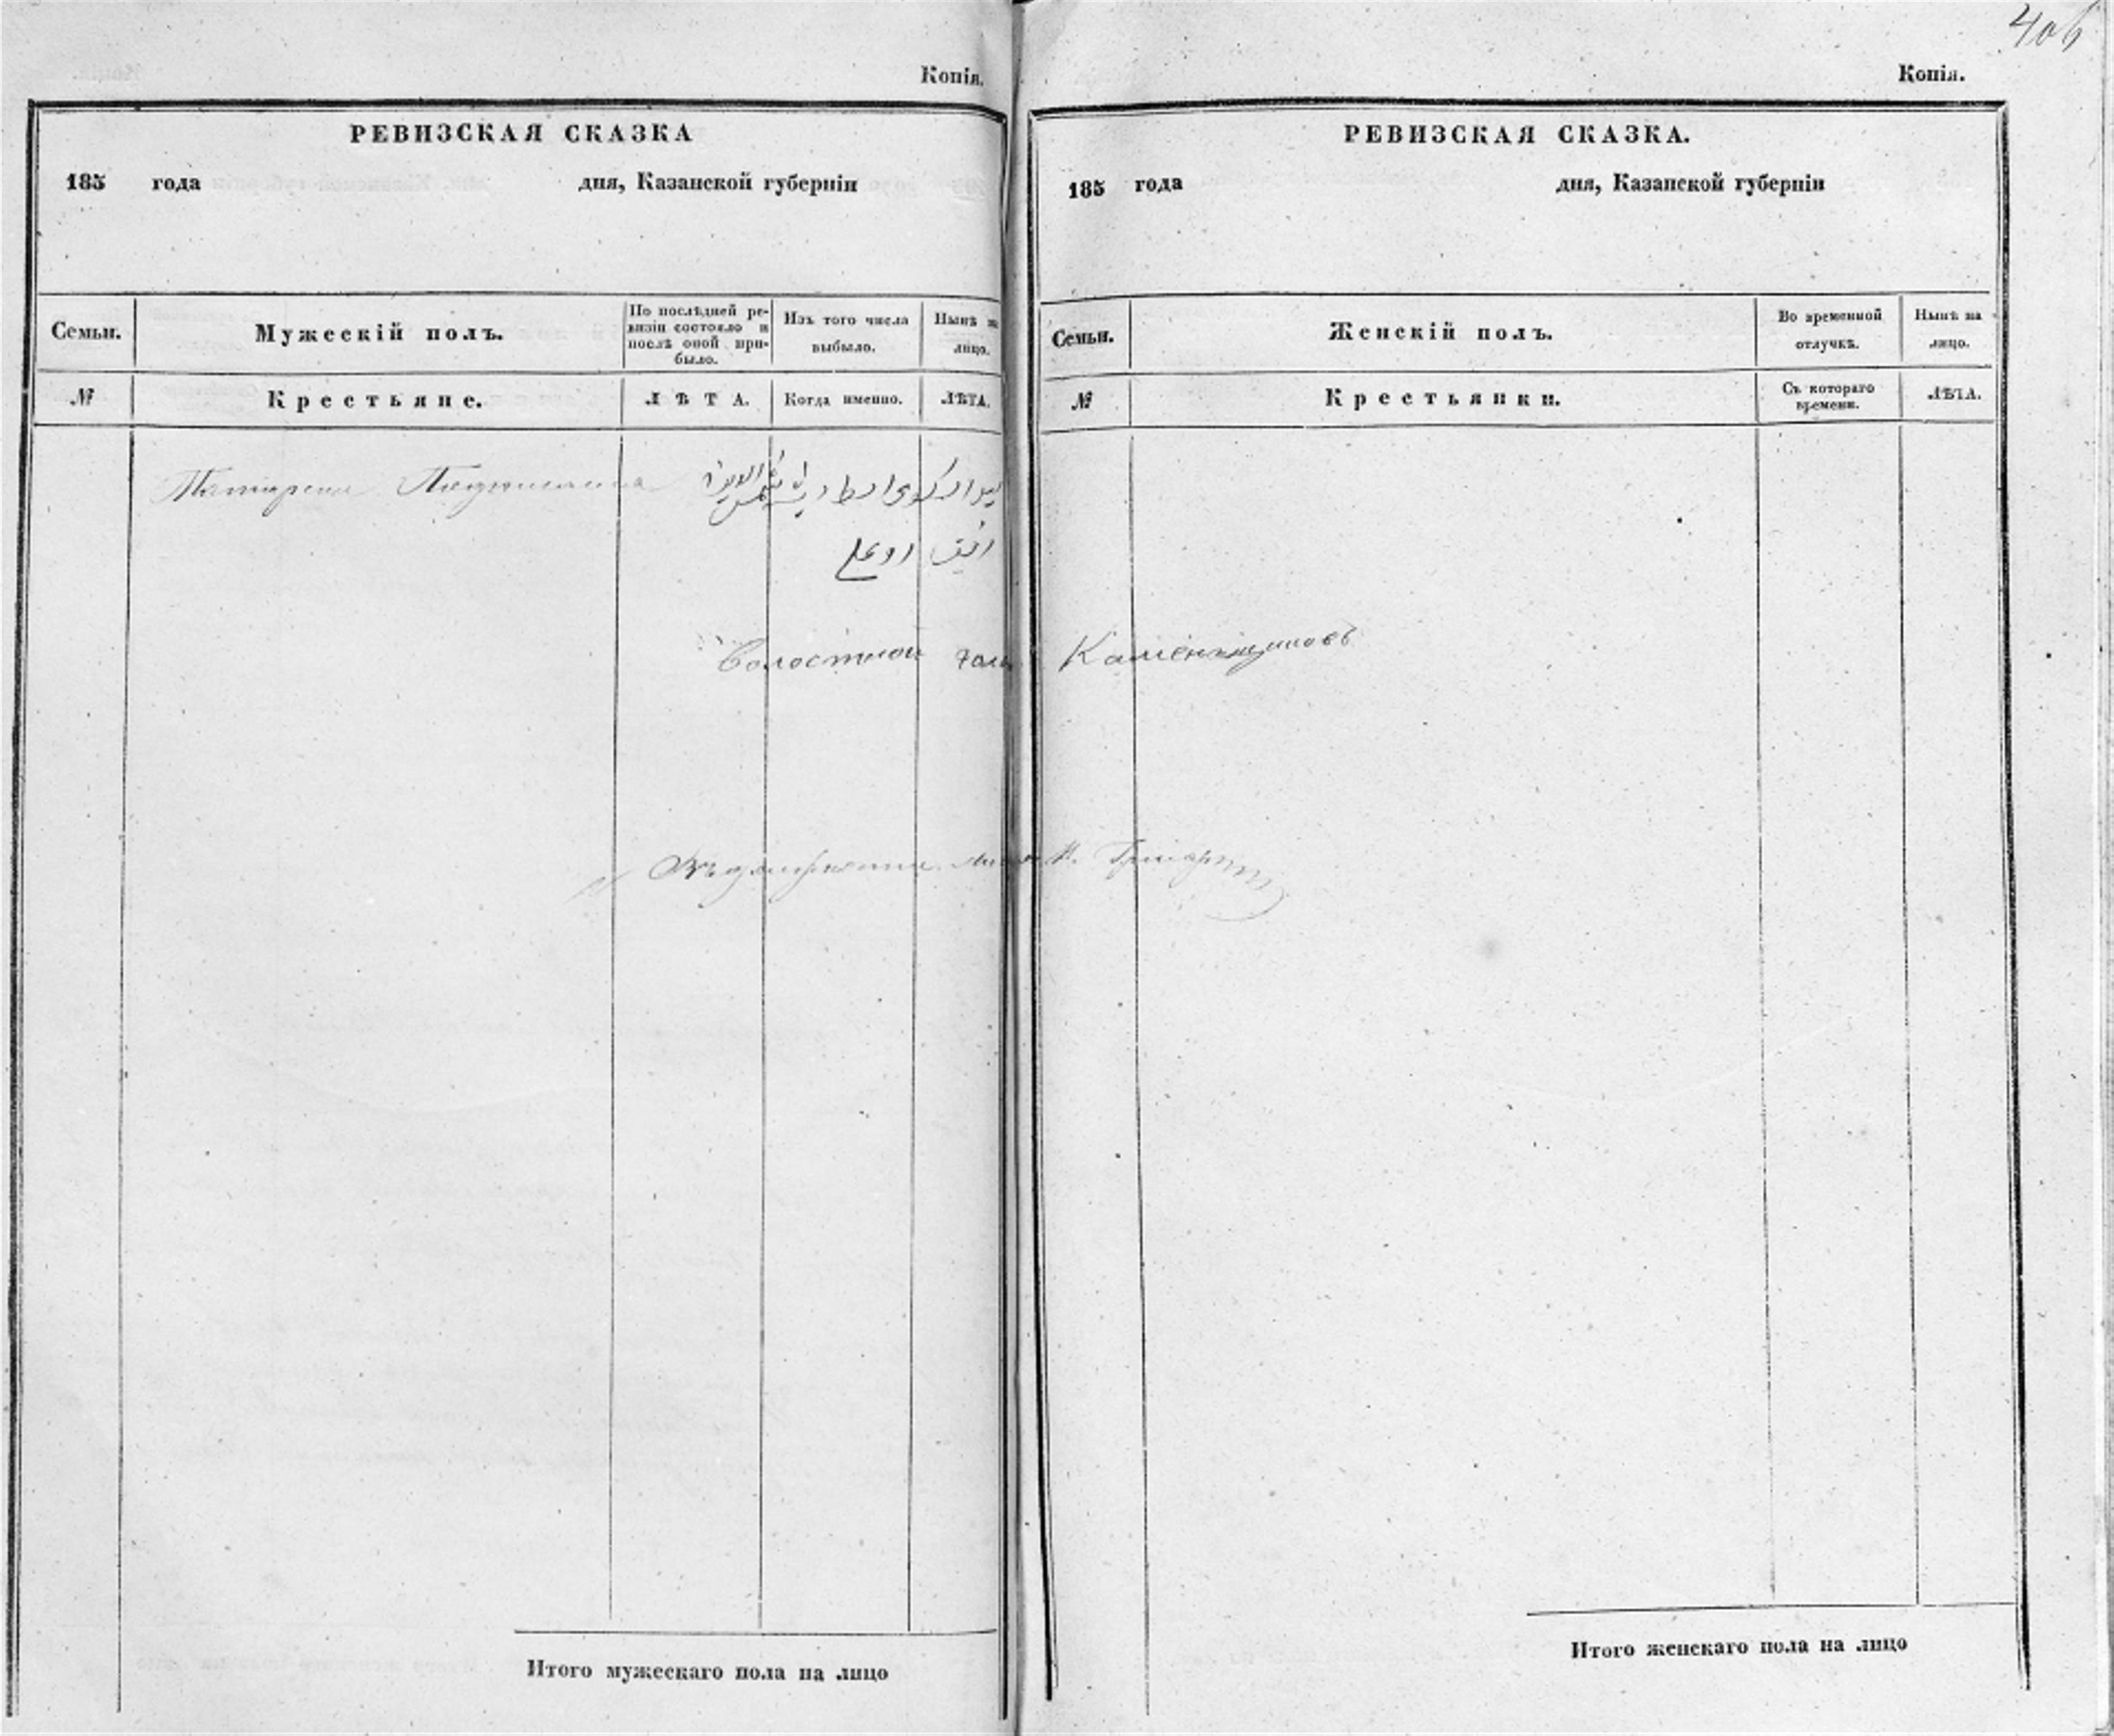 406
Копія.
РЕВИЗСКАЯ СКАЗКА
185 года дня, Казанской губерніи
Семьи.
Мужескій полъ.
По послѣдней ре-
визіи состояло и
послѣ оной при-
было.
Изъ того числа
выбыло.
Нынѣ на
лицо.
№
Крестьяне.
ЛѢТА.
Когда именно.
ЛѢТА.
Волостной Каменьщиковъ
Итого мужескаго пола на лицо
Копія.
РЕВИЗСКАЯ СКАЗКА.
185 года дня, Казанской губерніи
Семьи.
Женскій полъ.
Во временной
отлучкѣ.
Нынѣ на
лицо.
№
Крестьянки.
Съ котораго
времени.
ЛѢТА.
Итого женскаго пола на лицо